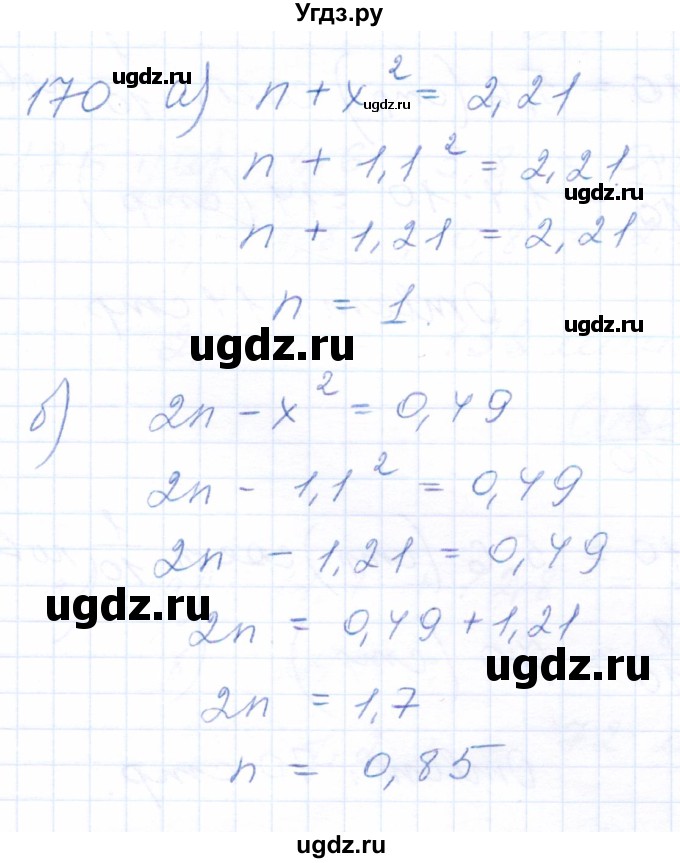 Угдз.ру
170 а) n + x² = 2,21
ugdz.ru
ugdz.ru
n + 1,1² = 2,21
ugdz.ru
n + 1,21 = 2,21
n = 1.
ugdz.ru
ugdz.ru
б) 2n - x² = 0,49
2n - 1,1² = 0,49
2n - 1,21 = 0,49
ugdz.ru
2n = 0,49 + 1,21
ugdz.ru
2n = 1,7
n = 0,85
ugdz.ru
ugdz.ru